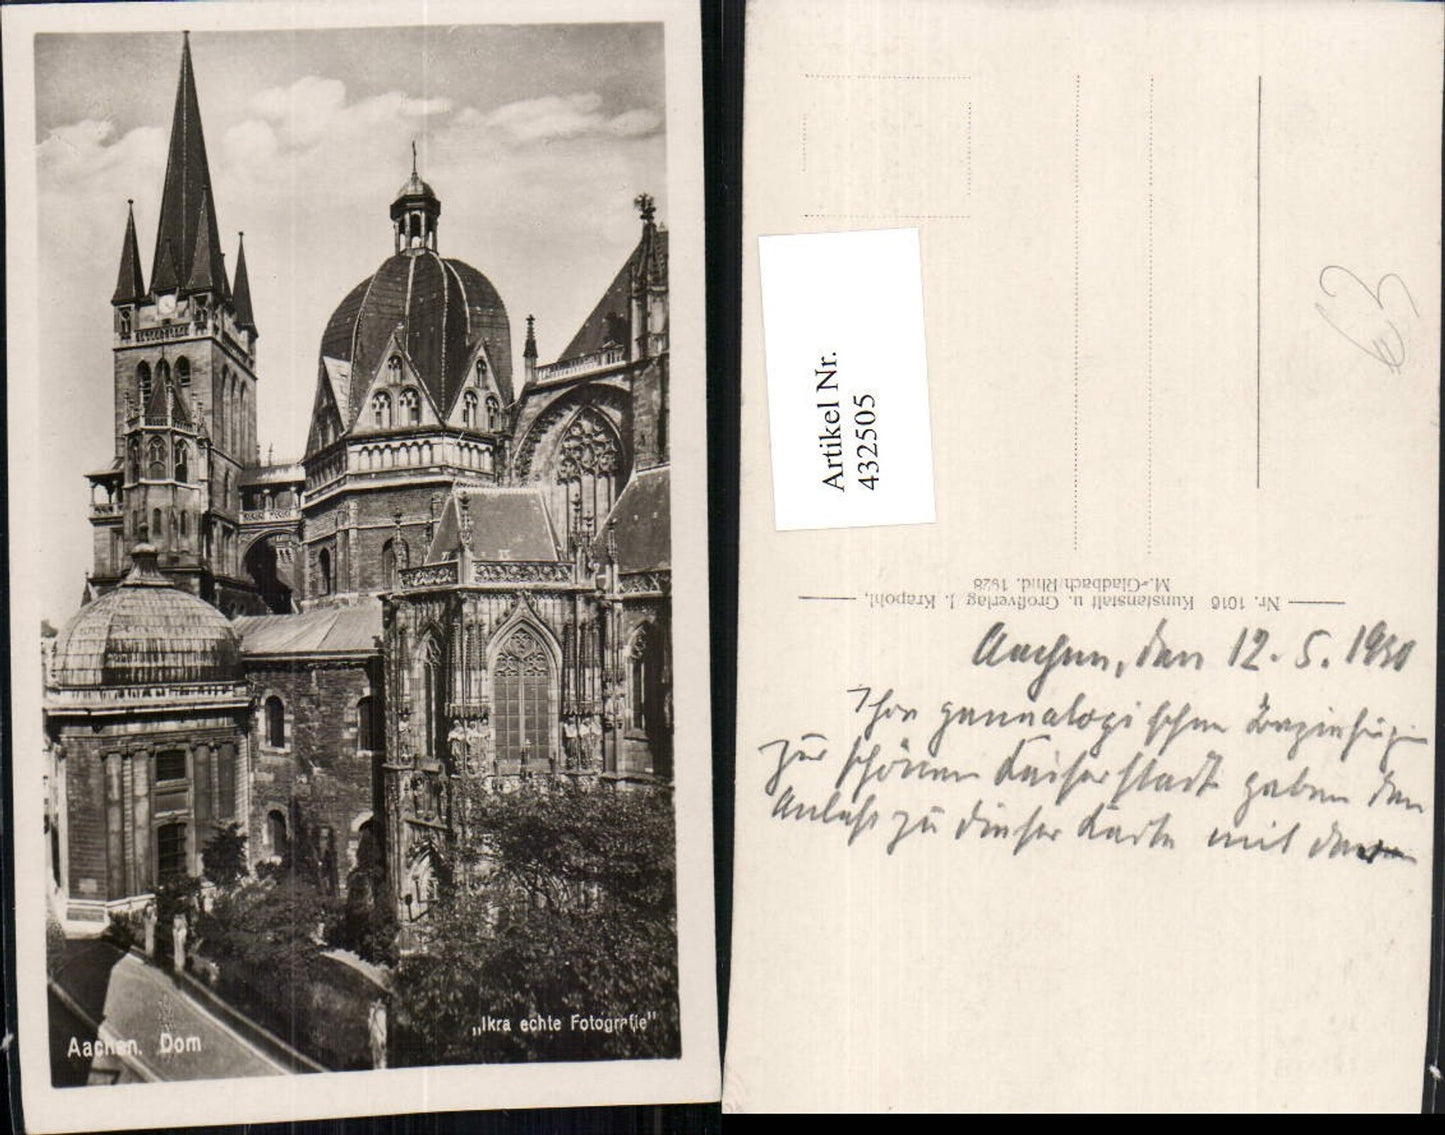 Aachen. Dom
„Ikra echte Fotografie"
Artikel Nr.
432505
Nr. 1016 Kunstanstalt u. Großverlag J. Krapohl,
M.-Gladbach/Rhld. 1928
€3
Aachen, den 12. 5. 1930
Ihre genealogischen Beziehungen
zur schönen Kaiserstadt gaben den
Anlaß zu dieser Karte mit